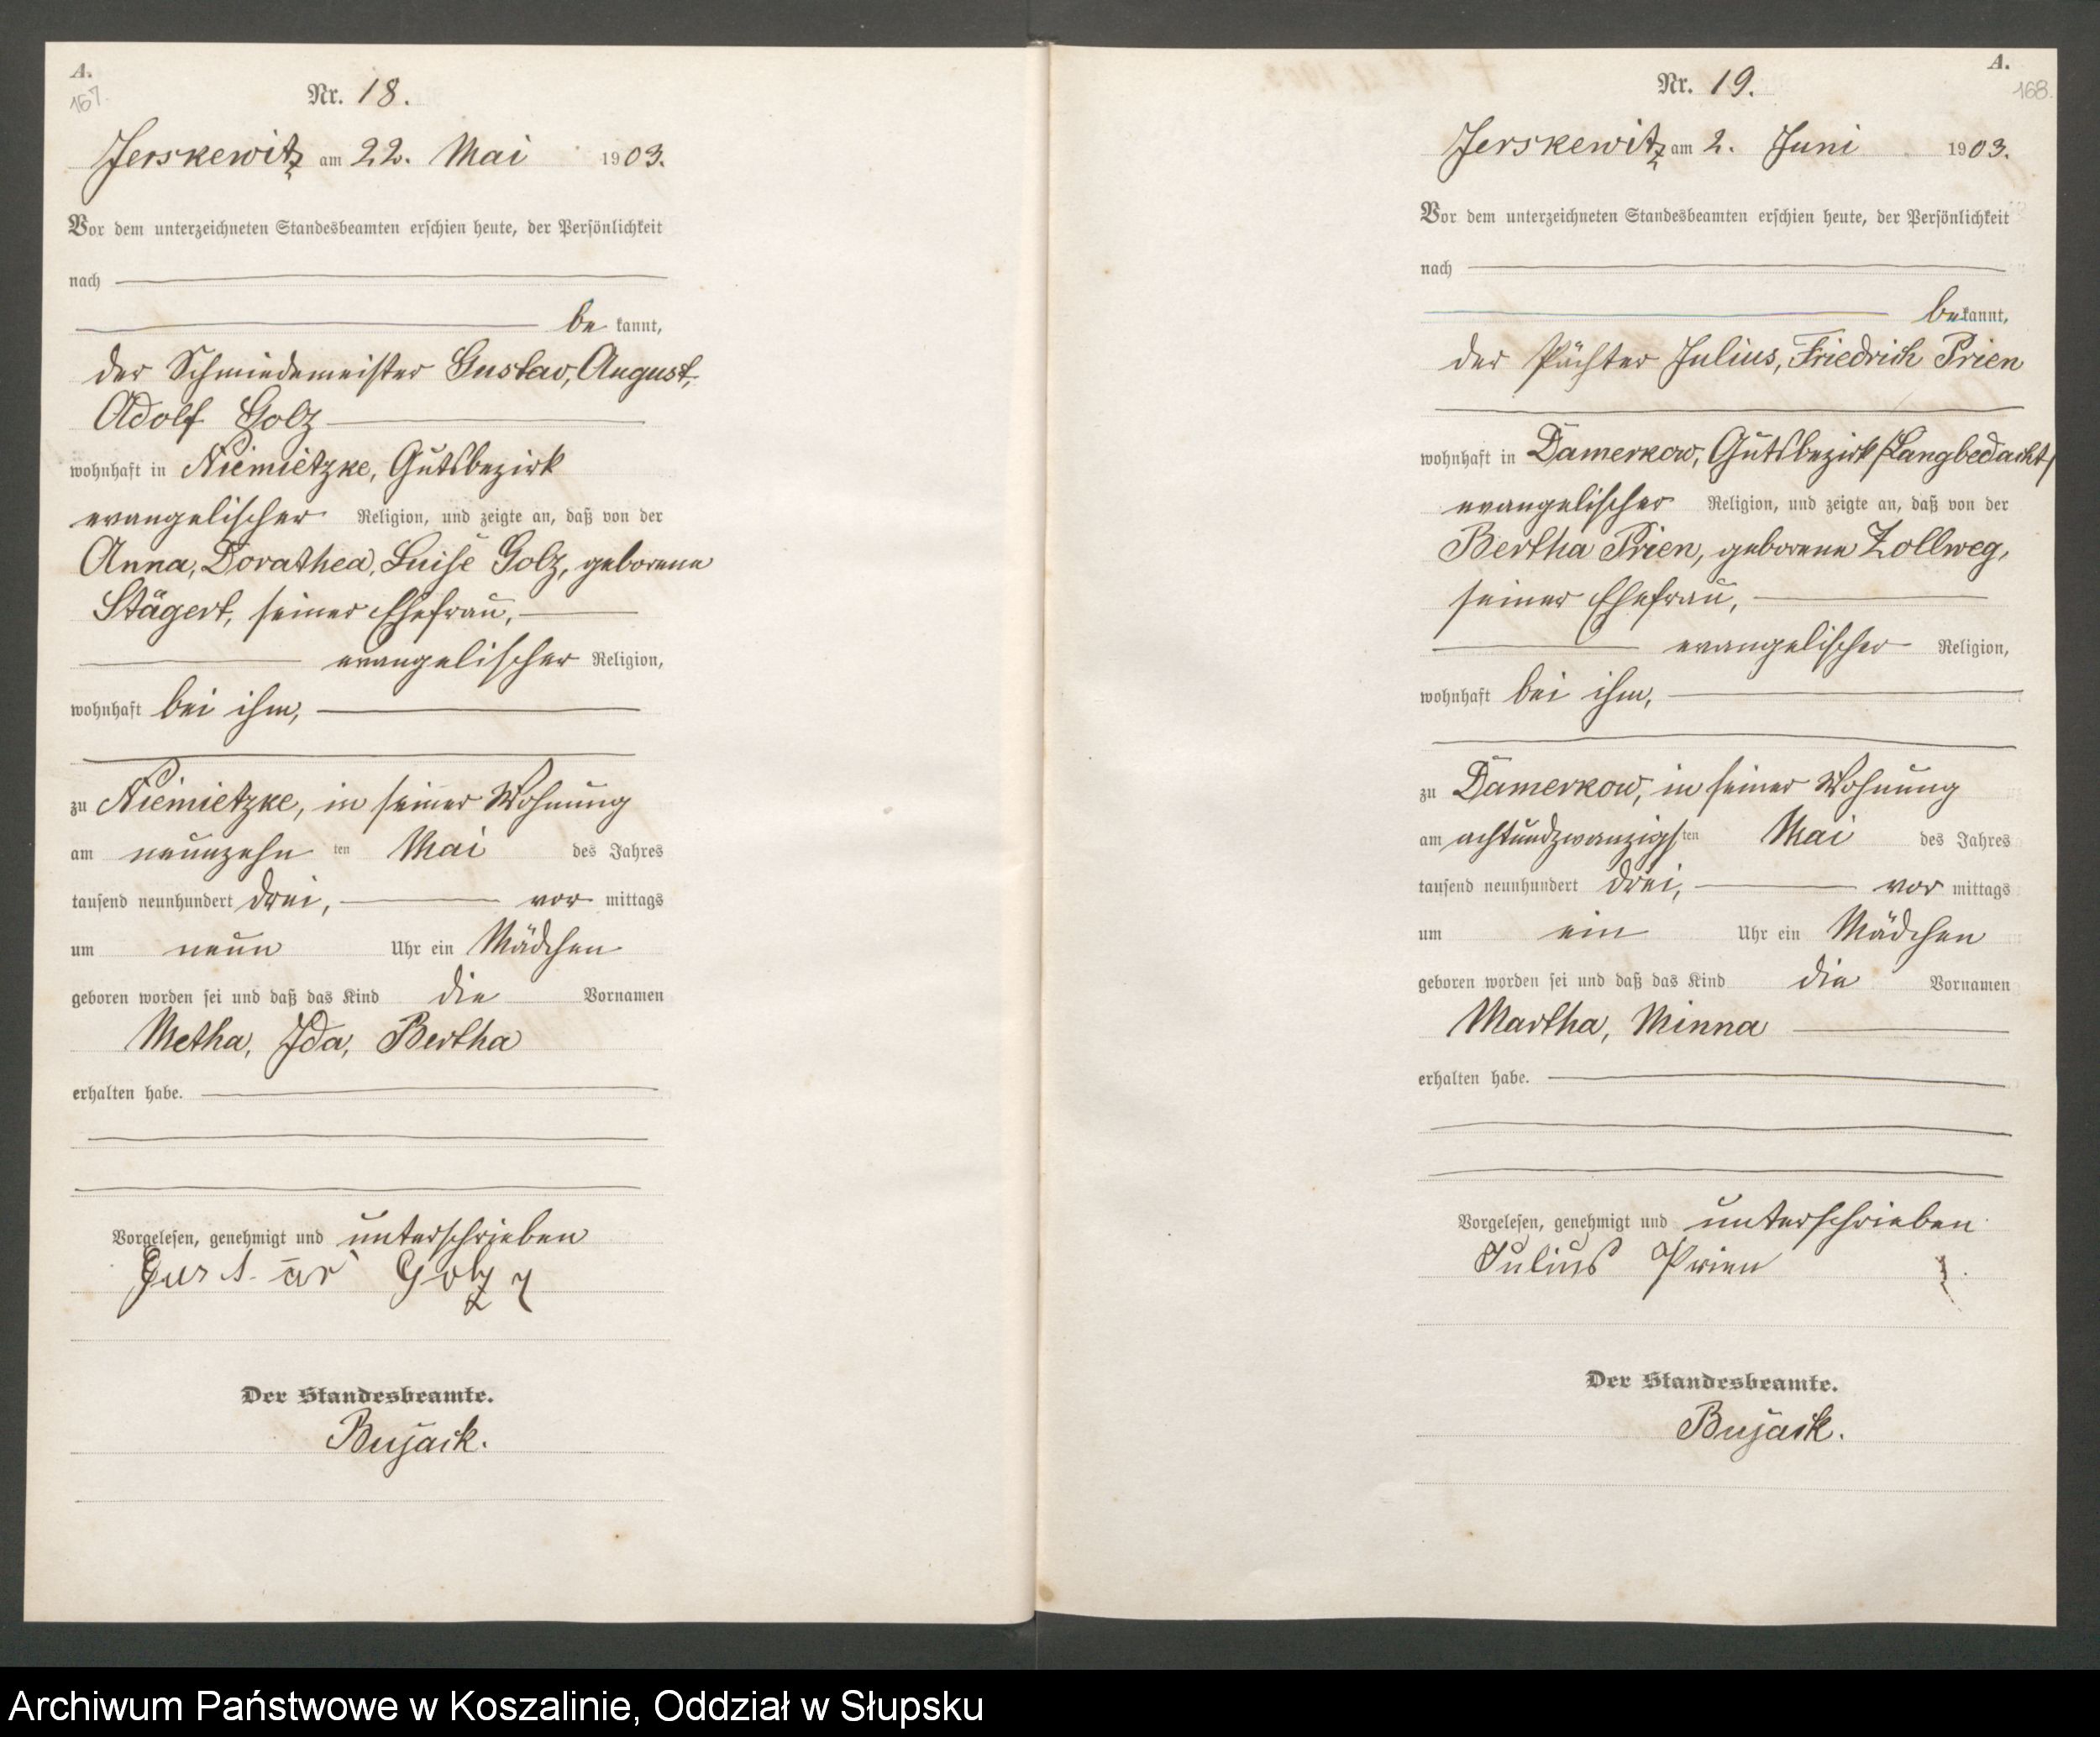 A.
167.
Nr. 18.
Jerskewitz am 22. Mai 1903.
Vor dem unterzeichneten Standesbeamten erschien heute, der Persönlichkeit
nach
be kannt,
der Schmiedemeister Gustav, August,
Adolf Golz
wohnhaft in Niemietzke, Gutsbezirk
evangelischer Religion, und zeigte an, daß von der
Anna, Dorathea, Luise Golz, geborene
Stägert, seiner Ehefrau,
evangelischer Religion,
wohnhaft bei ihm,
zu Niemietzke, in seiner Wohnung
am neunzehn ten Mai des Jahres
tausend neunhundert drei, vor mittags
um neun Uhr ein Mädchen
geboren worden sei und daß das Kind die Vornamen
Metha, Ida, Bertha
erhalten habe.
Vorgelesen, genehmigt und unterschrieben
Gustav Golz
Der Standesbeamte.
Bujack.
A.
168.
Nr. 19.
Jerskewitz am 2. Juni 1903.
Vor dem unterzeichneten Standesbeamten erschien heute, der Persönlichkeit
nach
bekannt,
der Pächter Julius, Friedrich Prien
wohnhaft in Damerkow, Gutsbezirk /Langbedacht/
evangelischer Religion, und zeigte an, daß von der
Bertha Prien, geborene Zollweg,
seiner Ehefrau,
evangelischer Religion,
wohnhaft bei ihm,
zu Damerkow, in seiner Wohnung
am achtundzwanzigsten Mai des Jahres
tausend neunhundert drei, vor mittags
um ein Uhr ein Mädchen
geboren worden sei und daß das Kind die Vornamen
Martha, Minna
erhalten habe.
Vorgelesen, genehmigt und unterschrieben
Julius Prien
Der Standesbeamte.
Bujack.
Archiwum Państwowe w Koszalinie, Oddział w Słupsku